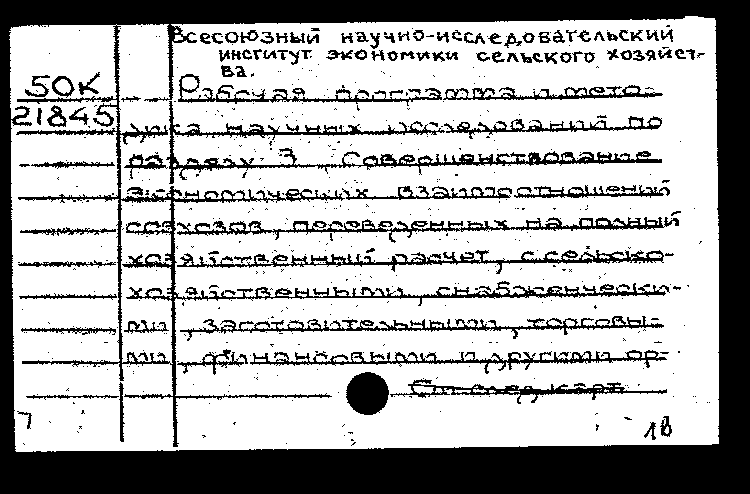 Всесоюзный научно-исследовательский
институт экономики сельского хозяйст-
ва.
50К
Рабочая программа и мето-
21845
дика научных исследований по
разделу 3 Совершенствование
экономических взаимоотношений
совхозов, переведенных на полный
хозяйственный расчет, с сельско-
хозяйственными, снабженчески-
ми, заготовительными, торговы-
ми, финансовыми и другими ор-
См след. карт
7
1В